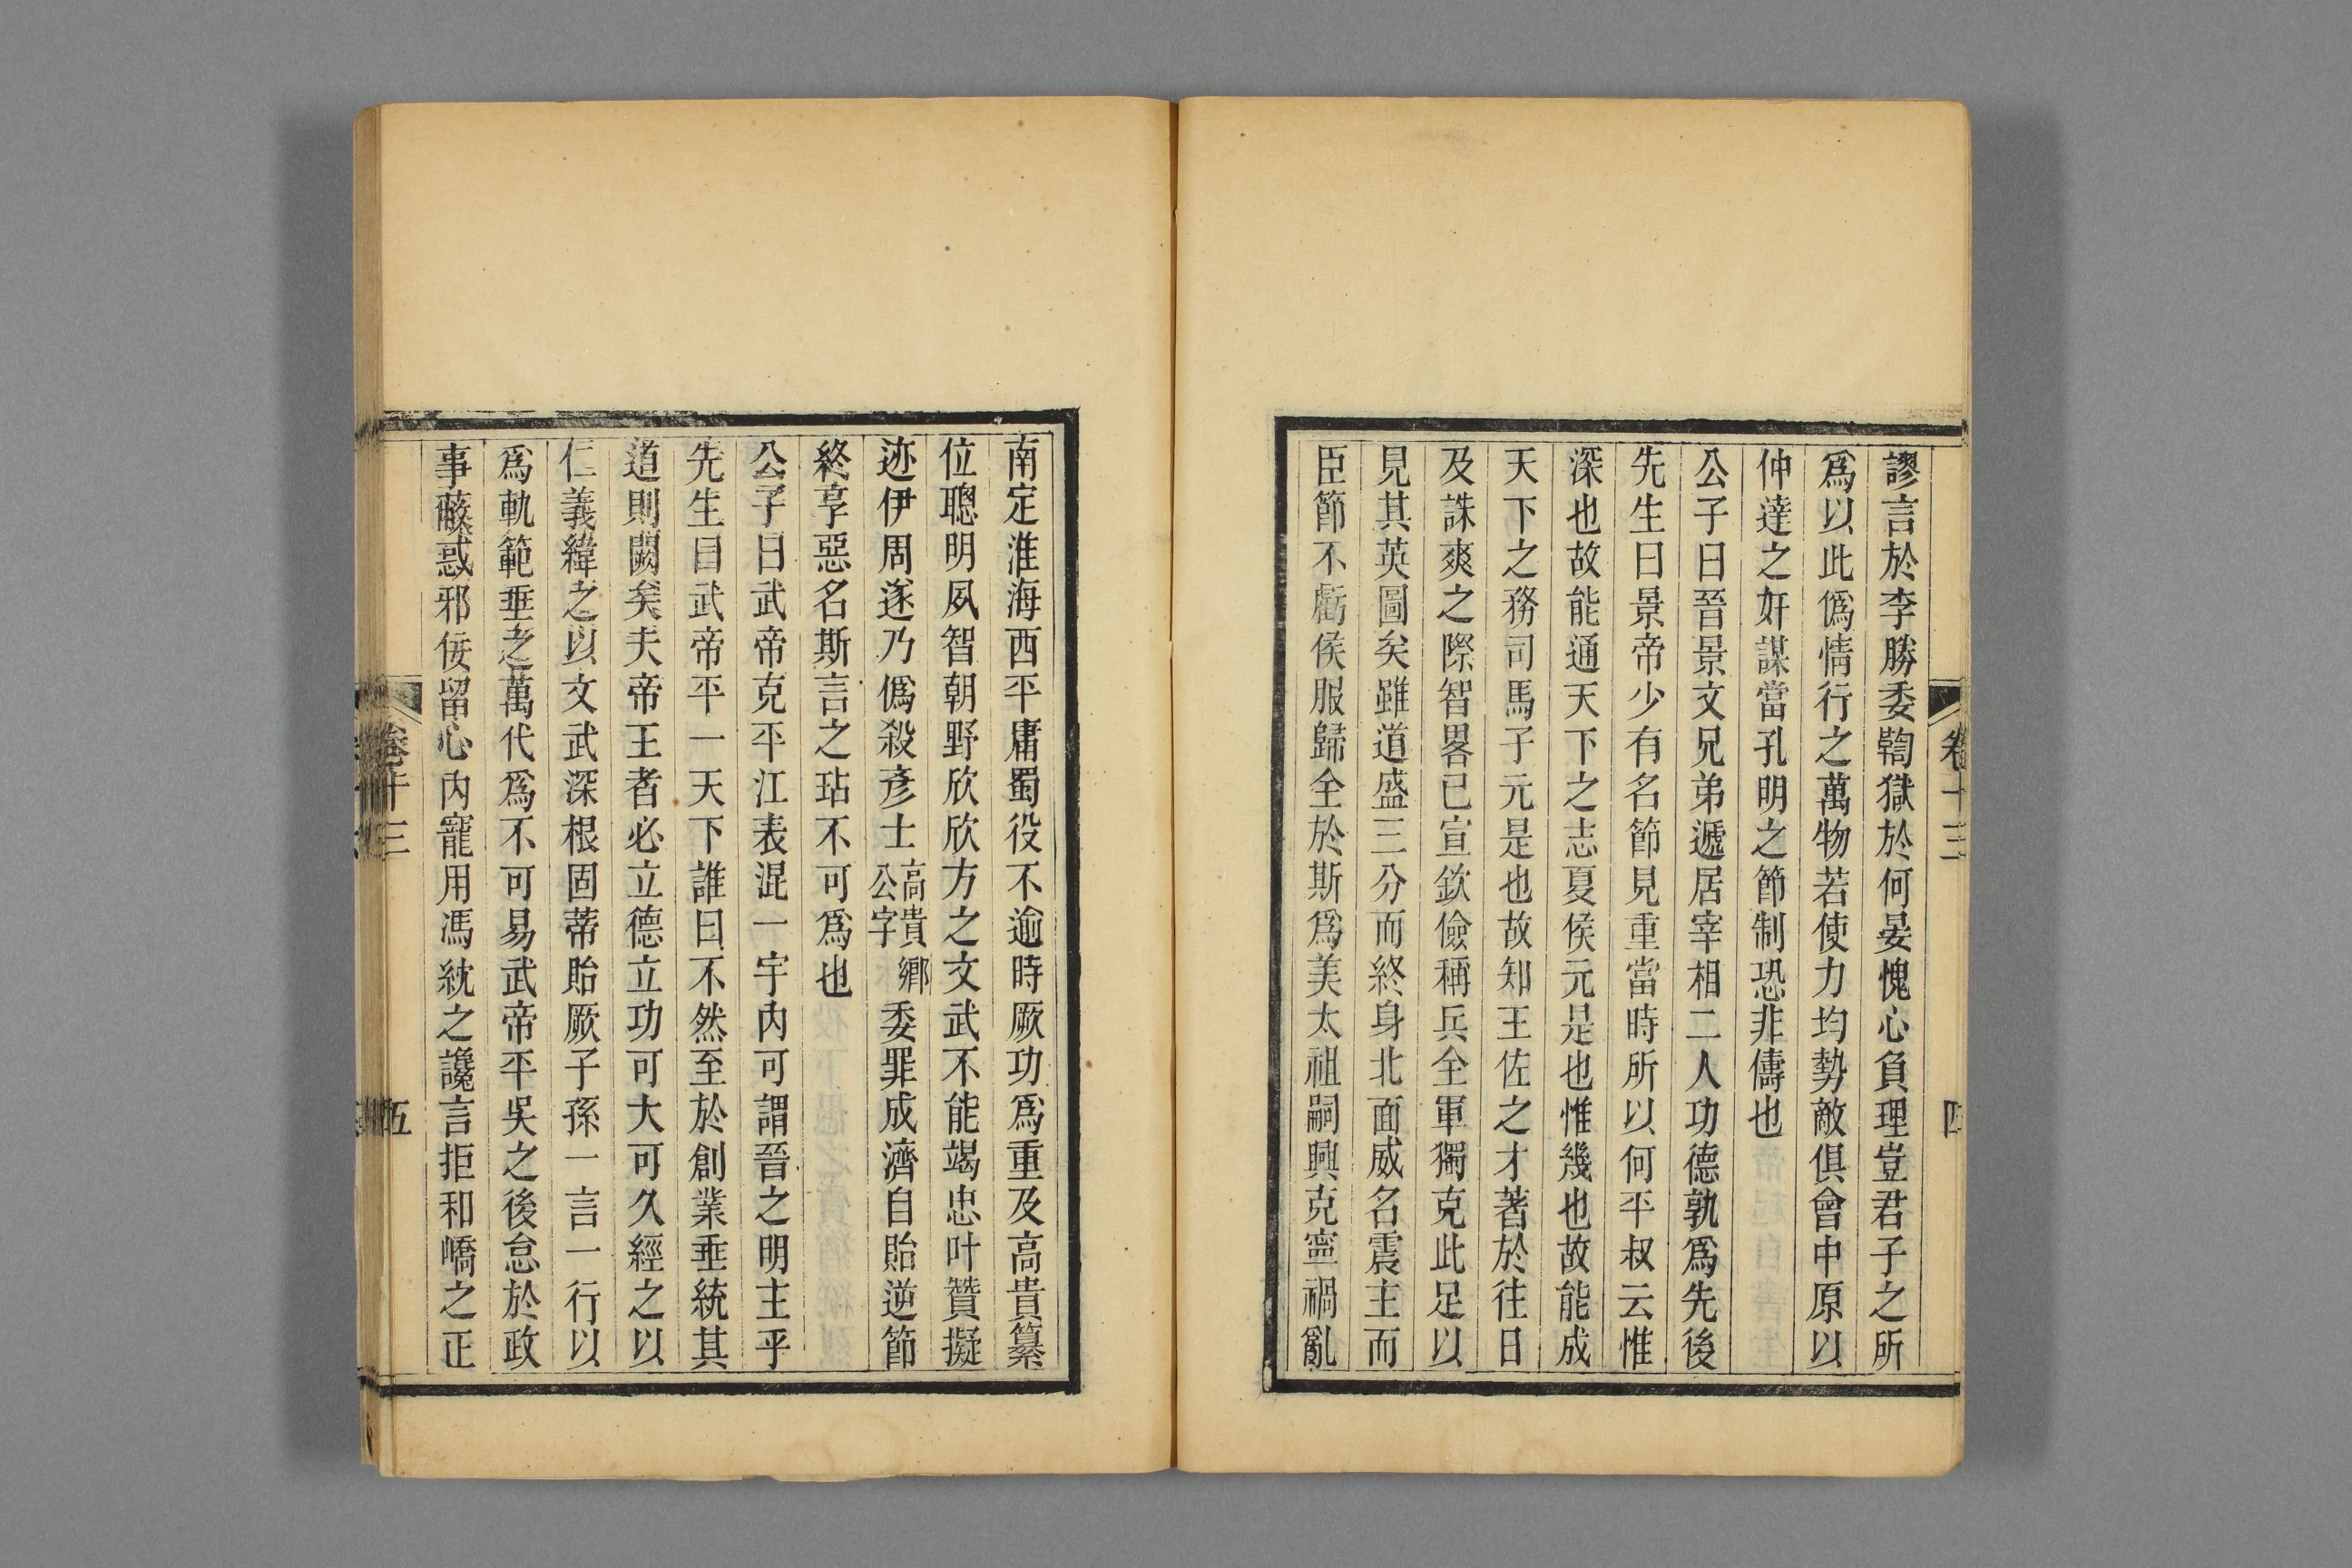 卷十三
四
謬言於李勝委鞫獄於何晏愧心負理豈君子之所
爲以此僞情行之萬物若使力均勢敵俱會中原以
仲達之奸謀當孔明之節制恐非儔也
公子曰晉景文兄弟遞居宰相二人功德孰爲先後
先生曰景帝少有名節見重當時所以何平叔云惟
深也故能通天下之志夏侯元是也惟幾也故能成
天下之務司馬子元是也故知王佐之才著於往日
及誅爽之際智畧已宣欽儉稱兵全軍獨克此足以
見其英圖矣雖道盛三分而終身北面威名震主而
臣節不虧侯服歸全於斯爲美太祖嗣興克寧禍亂
南定淮海西平庸蜀役不逾時厥功爲重及高貴纂
位聰明夙智朝野欣欣方之文武不能竭忠叶贊擬
迹伊周遂乃僞殺彥士高貴鄉公字委罪成濟自貽逆節
終享惡名斯言之玷不可爲也
公子曰武帝克平江表混一宇內可謂晉之明主乎
先生曰武帝平一天下誰曰不然至於創業垂統其
道則闕矣夫帝王者必立德立功可大可久經之以
仁義緯之以文武深根固蒂貽厥子孫一言一行以
爲軌範垂之萬代爲不可易武帝平吳之後怠於政
事蔽惑邪佞留心內寵用馮紞之讒言拒和嶠之正
卷十三
五